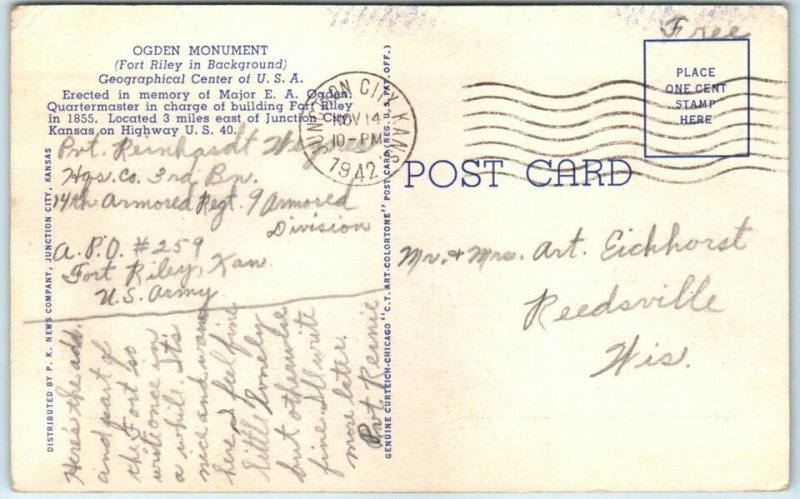 OGDEN MONUMENT
(Fort Riley in Background)
Geographical Center of U. S. A.
Erected in memory of Major E. A. Ogden,
Quartermaster in charge of building Fort Riley
in 1855. Located 3 miles east of Junction City,
Kansas on Highway U. S. 40.
Pvt. Reinhardt
Hqs. Co. 3rd Bn.
14th Armored Regt. 9 Armored
Division
A.P.O. #259
Fort Riley, Kan.
U.S. Army
Here's the add.
and part of
the Fort so
writ once in
a whil. It's
nice and warm
here I feel fine
little lonely
but otherwise
fine Ill write
more later.
Pvt Reinie
DISTRIBUTED BY P. K. NEWS COMPANY, JUNCTION CITY, KANSAS
GENUINE CURTEICH-CHICAGO "C.T. ART-COLORTONE" POST CARD (REG. U.S. PAT. OFF.)
JUNCTION CITY, KANS
NOV 14
10-PM
1942
Free
PLACE
ONE CENT
STAMP
HERE
POST CARD
Mr. & Mrs. Art. Eichhorst
Reedsville
Wis.